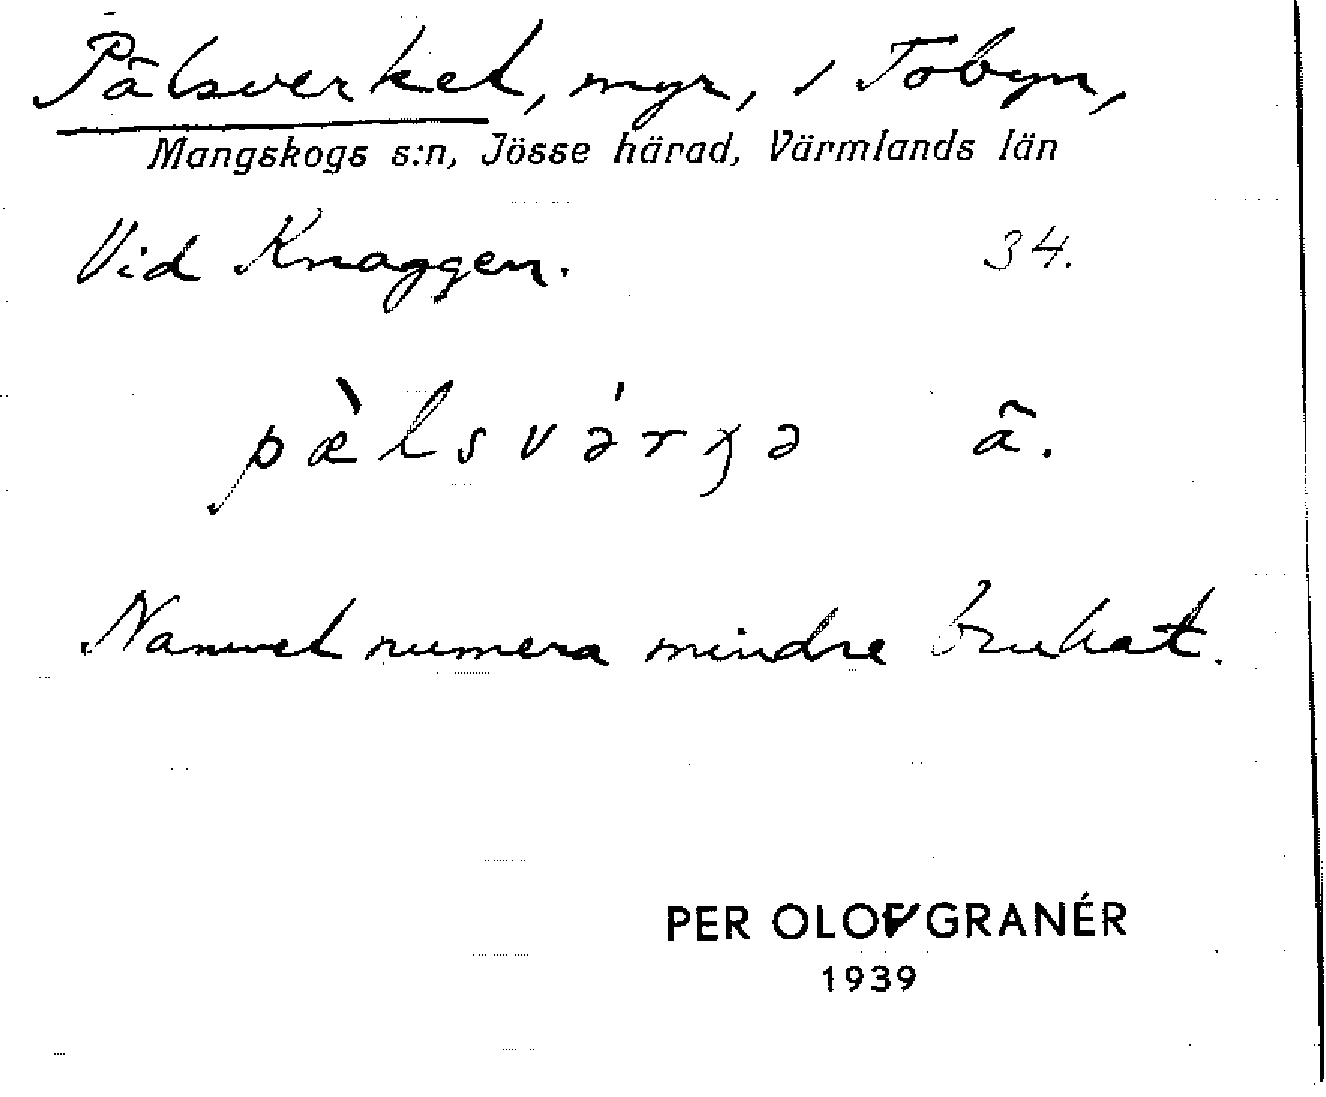 Pälsverket, myr, i Tobyn,
Mangskogs s:n, Jösse härad, Värmlands län
Vid Knaggen. 34.
pæ̀lsvə́rχə ã.
Namnet numera mindre brukat.
PER OLOF GRANÉR
1939